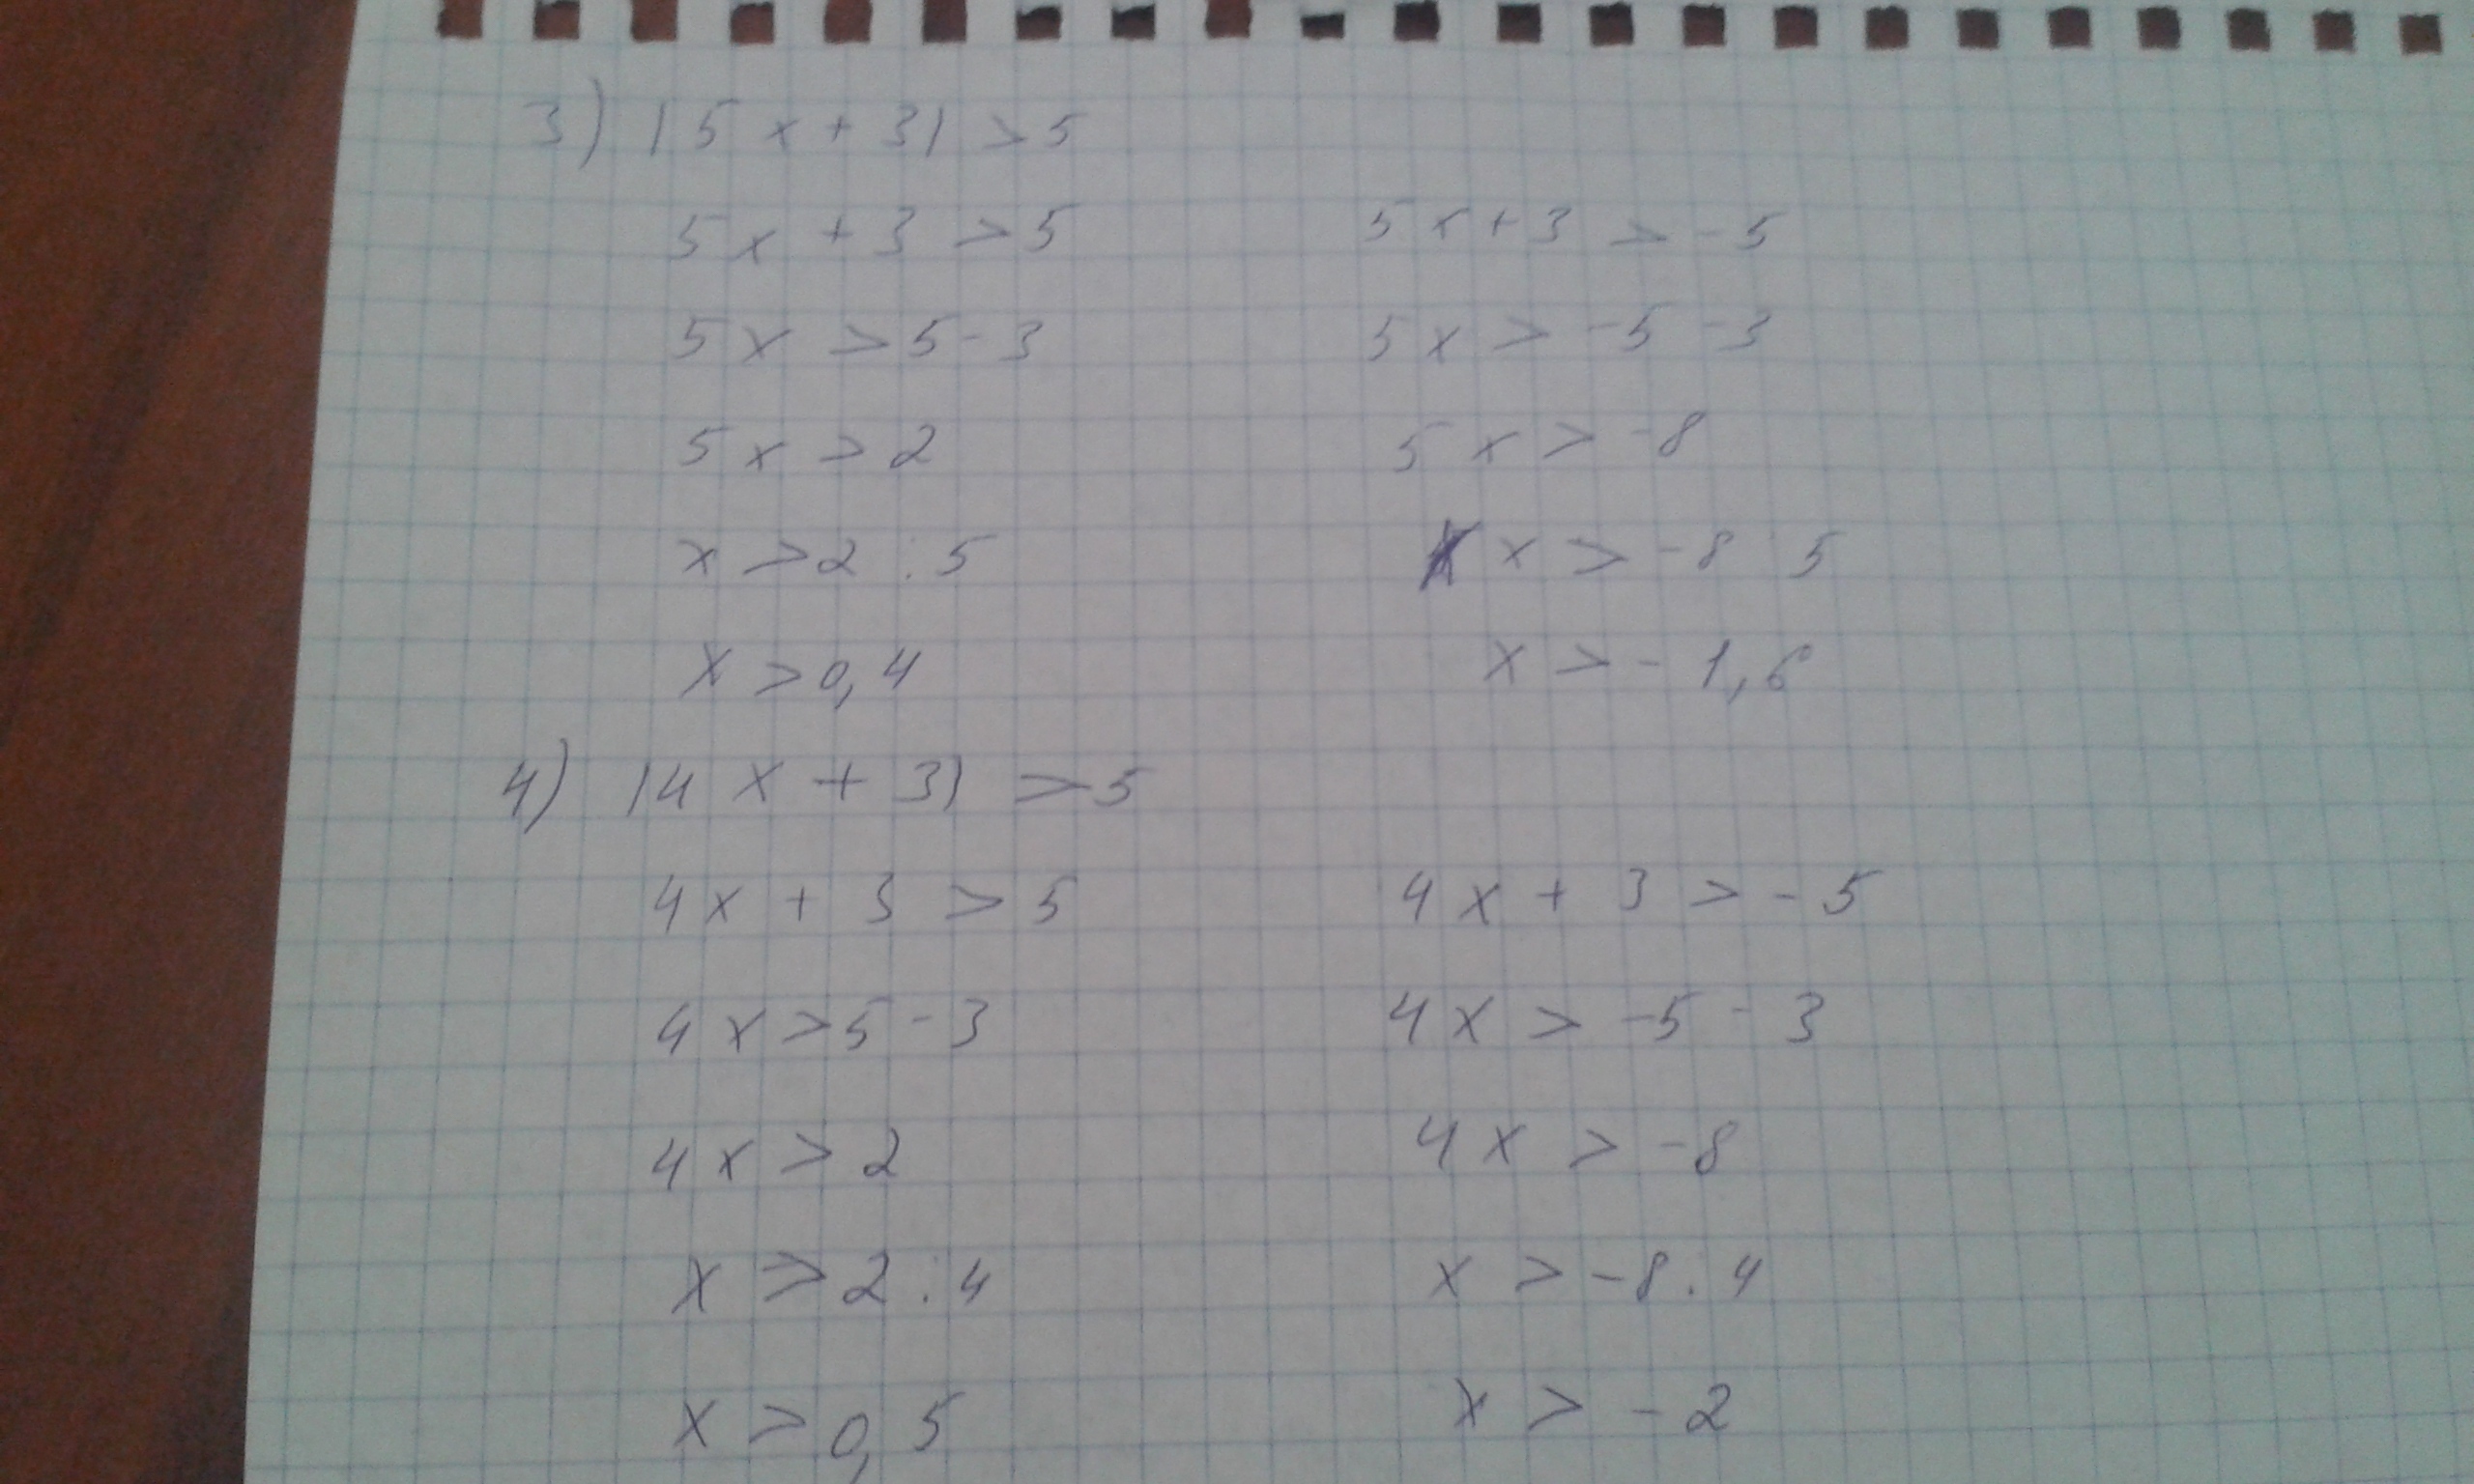 3) |5x + 3| > 5
5x + 3 > 5 5x + 3 > -5
5x > 5 - 3 5x > -5 - 3
5x > 2 5x > -8
x > 2 : 5 x > -8 : 5
x > 0,4 x > -1,6
4) |4x + 3| > 5
4x + 3 > 5 4x + 3 > -5
4x > 5 - 3 4x > -5 - 3
4x > 2 4x > -8
x > 2 : 4 x > -8 : 4
x > 0,5 x > -2